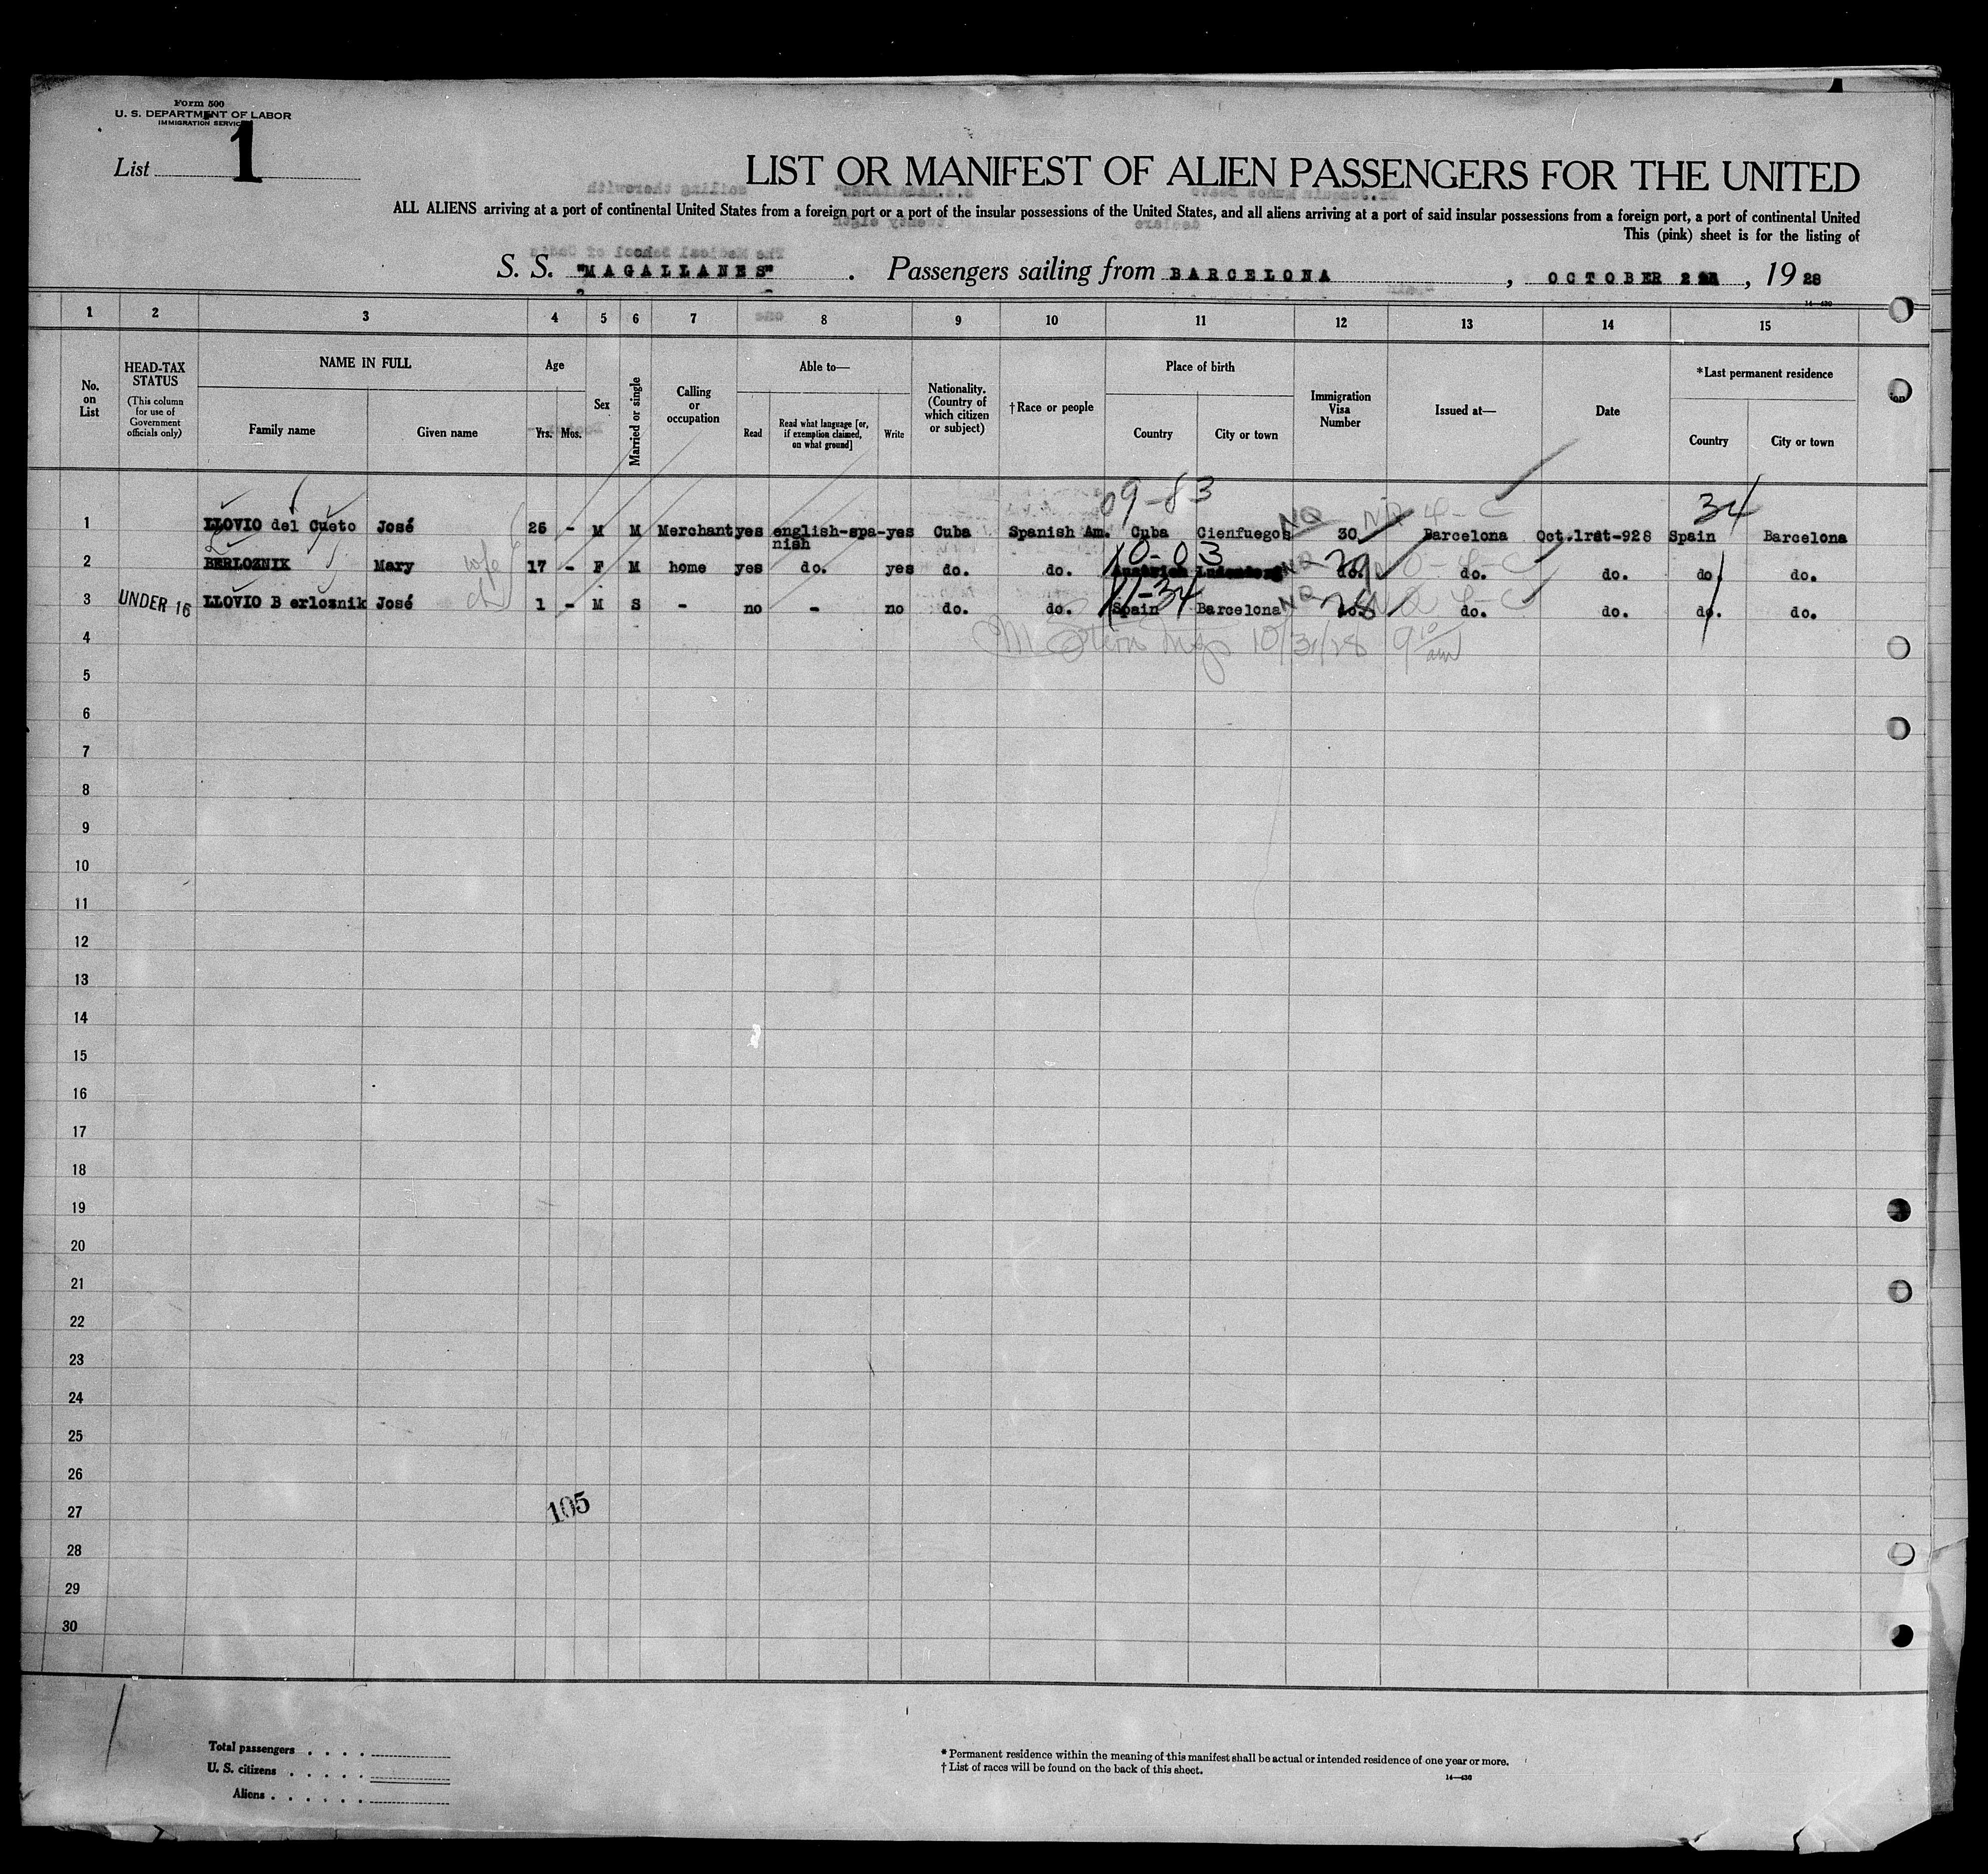 Form 500
U. S. DEPARTMENT OF LABOR
IMMIGRATION SERVICE
List 1
LIST OR MANIFEST OF ALIEN PASSENGERS FOR THE UNITED
ALL ALIENS arriving at a port of continental United States from a foreign port or a port of the insular possessions of the United States, and all aliens arriving at a port of said insular possessions from a foreign port, a port of continental United
This (pink) sheet is for the listing of
S. S. "MAGALLANES" . Passengers sailing from BARCELONA , OCTOBER , 19 28
14—430
1 2 3 4 5 6 7 8 9 10 11 12 13 14 15
No. on List
HEAD-TAX STATUS
(This column for use of Government officials only)
NAME IN FULL
Family name
Given name
Age
Yrs. Mos.
Sex
Married or single
Calling or occupation
Able to—
Read
Read what language [or, if exemption claimed, on what ground]
Write
Nationality. (Country of which citizen or subject)
†Race or people
Place of birth
Country
City or town
Immigration Visa Number
Issued at—
Date
*Last permanent residence
Country
City or town
09-83 34
1 LLOVIO del Cueto José 25 - M M Merchant yes english-spa- yes Cuba Spanish Am. Cuba Cienfuegos NQ 30 NQ 4-C Barcelona Oct.1rst-928 Spain Barcelona
nish
10-03
2 BERLOZNIK Mary wife 17 - F M home yes do. yes do. do. NQ 29 do. do. do. do. do.
11-34
3 UNDER 16 LLOVIO B erloznik José 1 - M S - no - no do. do. Spain Barcelona NQ 28 do. NQ 4-C do. do. do. do.
4 10/31/28 9 10 am
5
6
7
8
9
10
11
12
13
14
15
16
17
18
19
20
21
22
23
24
25
26
27
105
28
29
30
Total passengers . . . .
U. S. citizens . . . . .
Aliens . . . . . .
* Permanent residence within the meaning of this manifest shall be actual or intended residence of one year or more.
† List of races will be found on the back of this sheet.
14—430